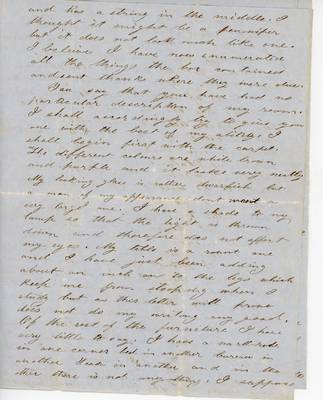 and has a string in the middle. I
thought it might be a penwiper
but it does not look much like one.
I believe I have now enumerated
all the things the box contained
and sent thanks where they were due.
You say that you have had no
particular description of my room.
I shall accordingly try to give you
one with the best of my abilities. I
shall begin first with the carpet.
The different colours are white brown
and purple and it looks very neatly
My looking glass is rather dwarfish but
a man of my appearance dont want a
very large one. I have a shade to my
lamp so that the light is thrown
down and therefore does not affect
my eyes. My table is a round one
and I have just been adding
about an inch on to the legs which
keep me from stooping when I
study but as this letter will prove
does not do my writing any good.
Of the rest of the furniture I have
very little to say. I have a wardrobe
in one corner bed in another bureau in
another desk in another and in the
other there is not any thing. I suppose